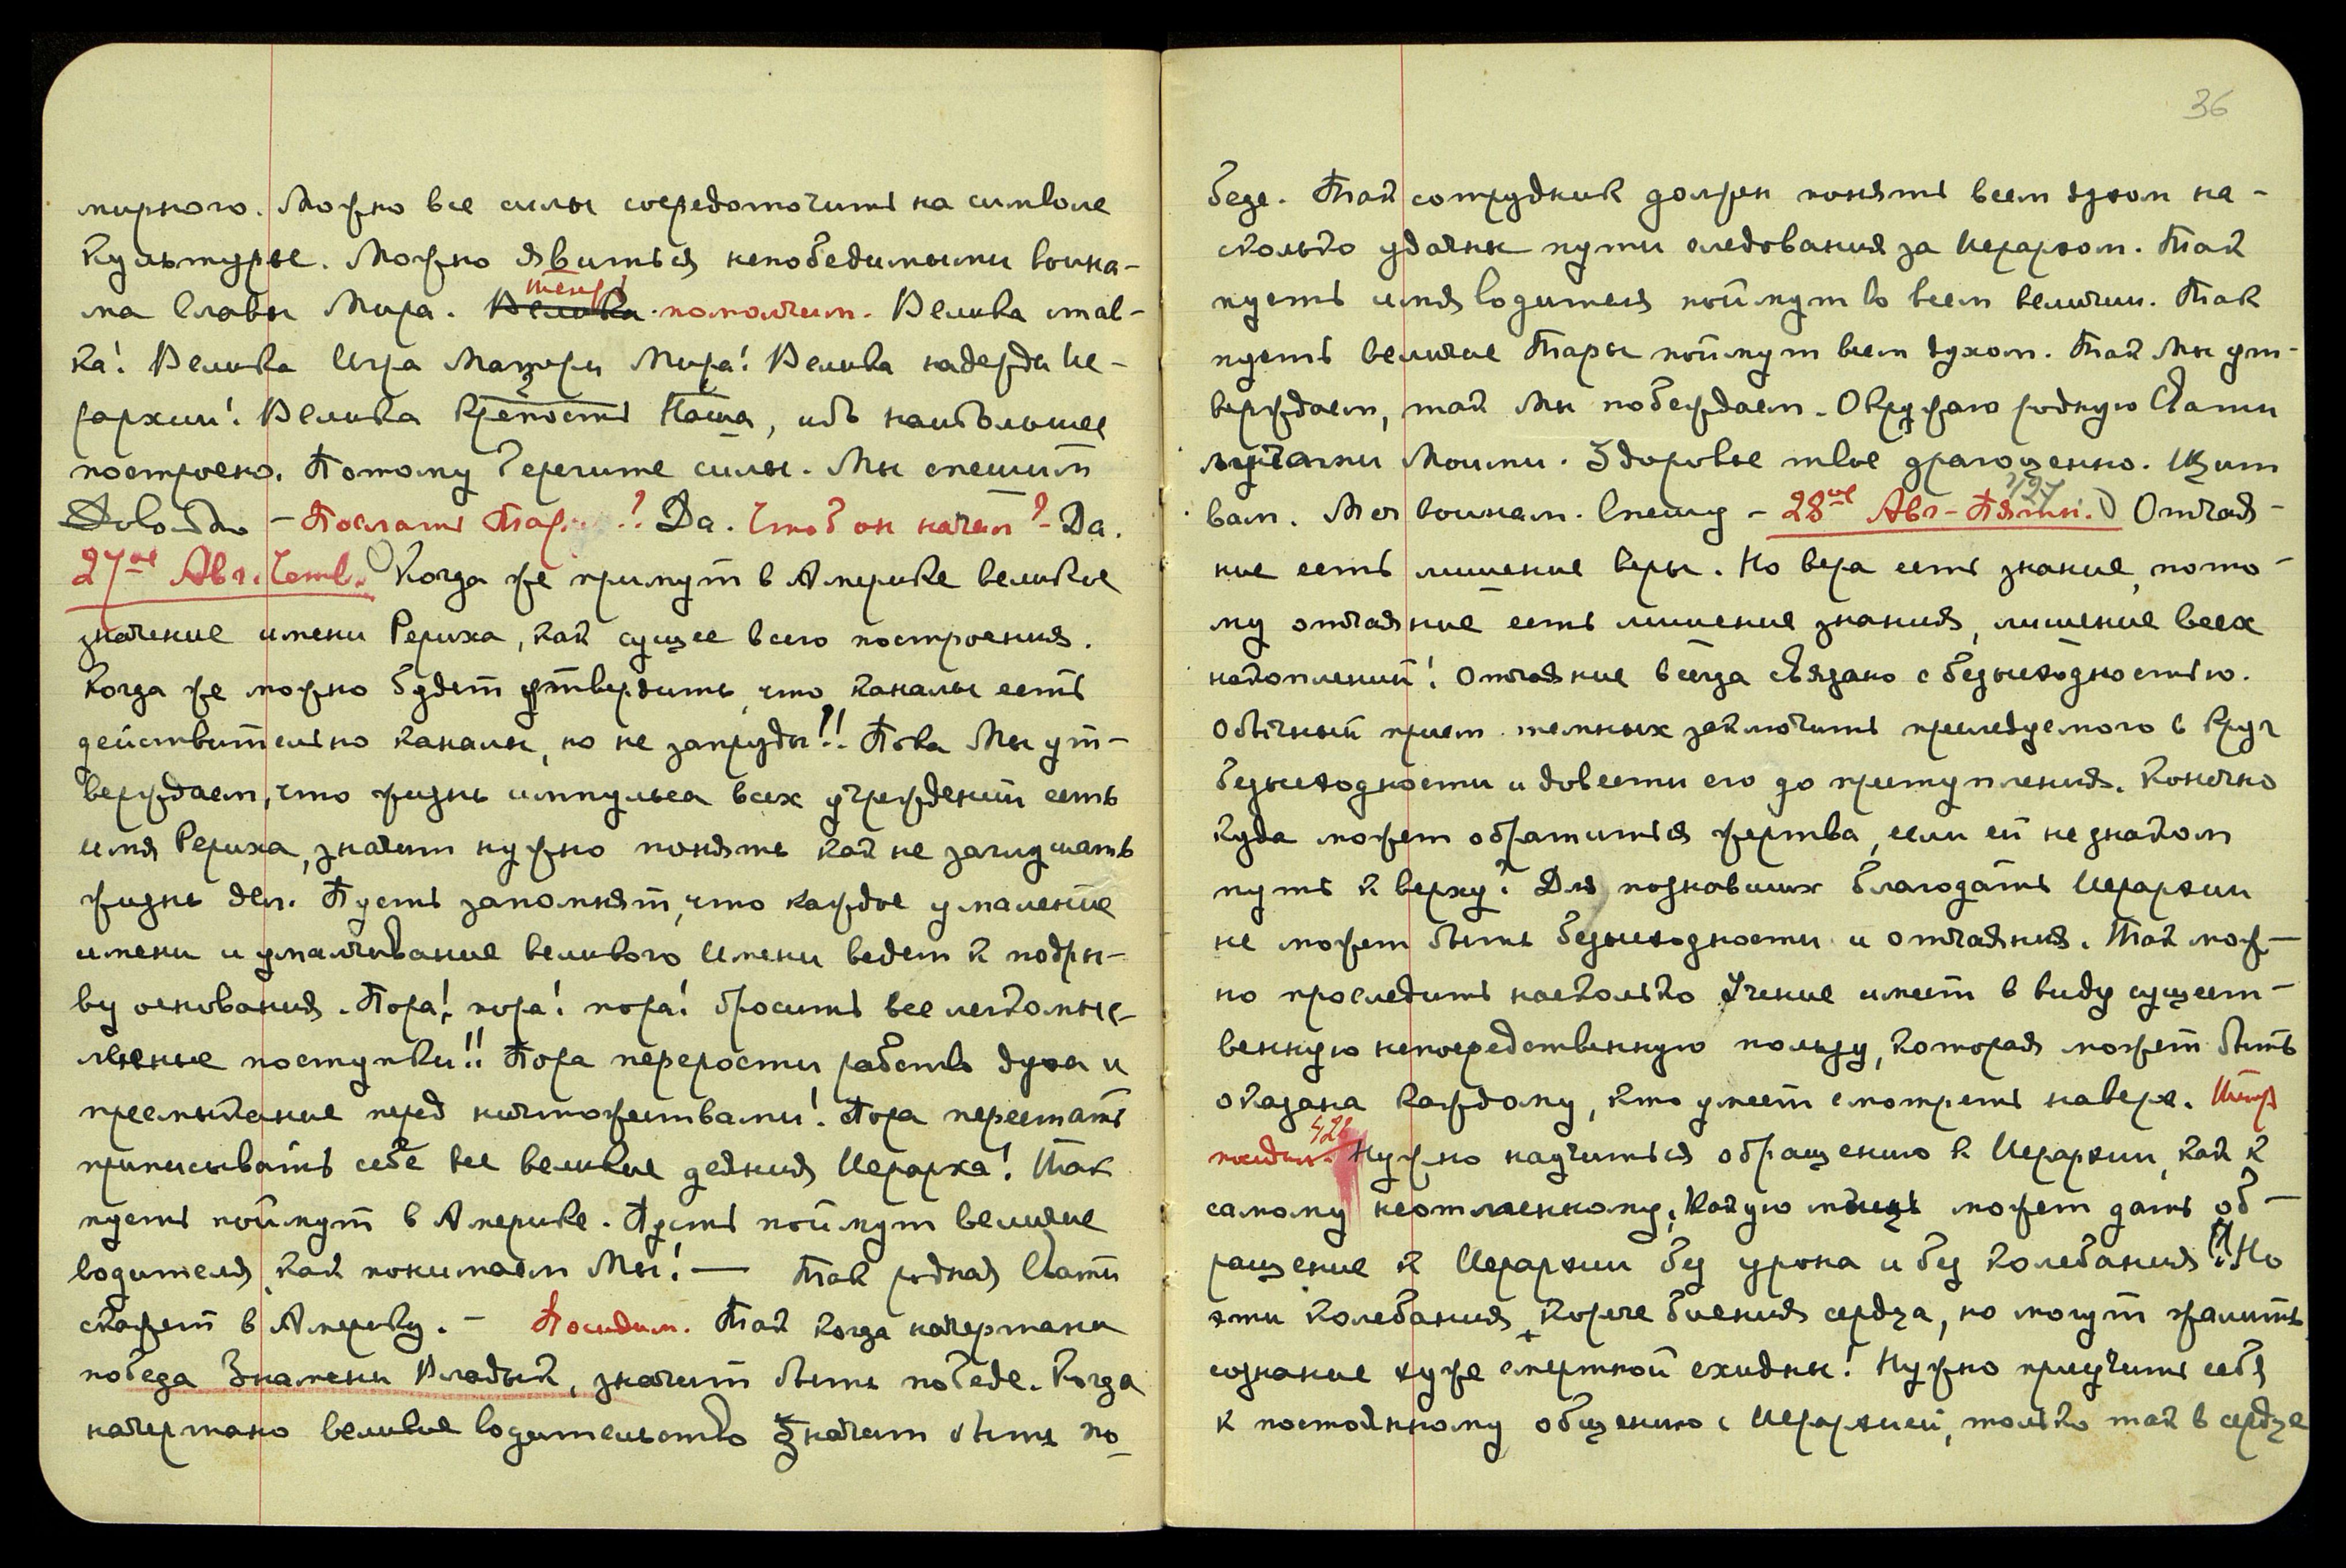 мирного. Можно все силы сосредоточить на символе
Культуры. Можно явиться непобедимыми воина-
ма Славы Мира. Велика помолчим. Велика став-
ка! Велика Игра Матери Мира! Велика надежда Ие-
рархии! Велика крепость Наша, ибо наибольшее
построено. Потому берегите силы. Мы спешим
Довольно — Послать ? Да. Чтоб он начал? — Да.
27ое Авг. Четв. Когда же примут в Америке великое
значение имени Рериха, как сущее всего построения.
Когда же можно будет утвердить, что каналы есть
действительно каналы, но не запруды!! Пока Мы ут-
верждаем, что жизнь импульса всех учреждений есть
имя Рериха, значит нужно понять как не заглушать
жизнь дел. Пусть запомнят, что каждое умаление
имени и умалчивание великого Имени ведет к подры-
ву основания. Пора! пора! пора! бросить все легкомыс-
ленные поступки!! Пора перерости рабство духа и
пресмыкание перед ничтожествами! Пора перестать
приписывать себе все великие деяния Иерарха! Так
пусть поймут в Америке. Пусть поймут величие
водителя, как понимаем Мы! — Так родная Свати
скажет в Америку. — Посидим. Так когда начертана
победа Знамени Владык, значит быть победе. Когда
начертано великое водительство значит быть по-
36
беде. Так сотрудник должен понять всем духом на-
сколько удачны пути следования за Иерархом. Так
пусть имя водителя поймут во всем величии. Так
пусть величие Тары поймут всем духом. Так Мы ут-
верждаем, так Мы побеждаем. Окружаю родную Свати
лучами Моими. Здоровье твое драгоценно. Щит
вам. Меч воинам. Спешу — 28ое Авг — Пятн. Отчая-
ние есть лишение веры. Но вера есть знание, пото-
му отчаяние есть лишение знания, лишение всех
накоплений! Отчаяние всегда связано с безысходностью.
Обычный прием темных заключить преследуемого в круг
безысходности и довести его до преступления. Конечно
куда может обратиться жертва, если ей не знаком
путь к верху? Для познавших благодать Иерархии
не может быть безысходности и отчаяния. Так мож-
но проследить насколько Учение имеет в виду сущест-
венную непосредственную пользу, которая может быть
оказана каждому, кто умеет смотреть наверх.
428
Нужно научиться обращению к Иерархии, как к
самому неотменному. Какую мощь может дать об-
ращение к Иерархии без урона и без колебания?! Но
эти колебания, короче биения сердца, но могут жалить
сознание хуже смертной ехидны! Нужно приучить себя
к постоянному общению с Иерархией, только так в сердце